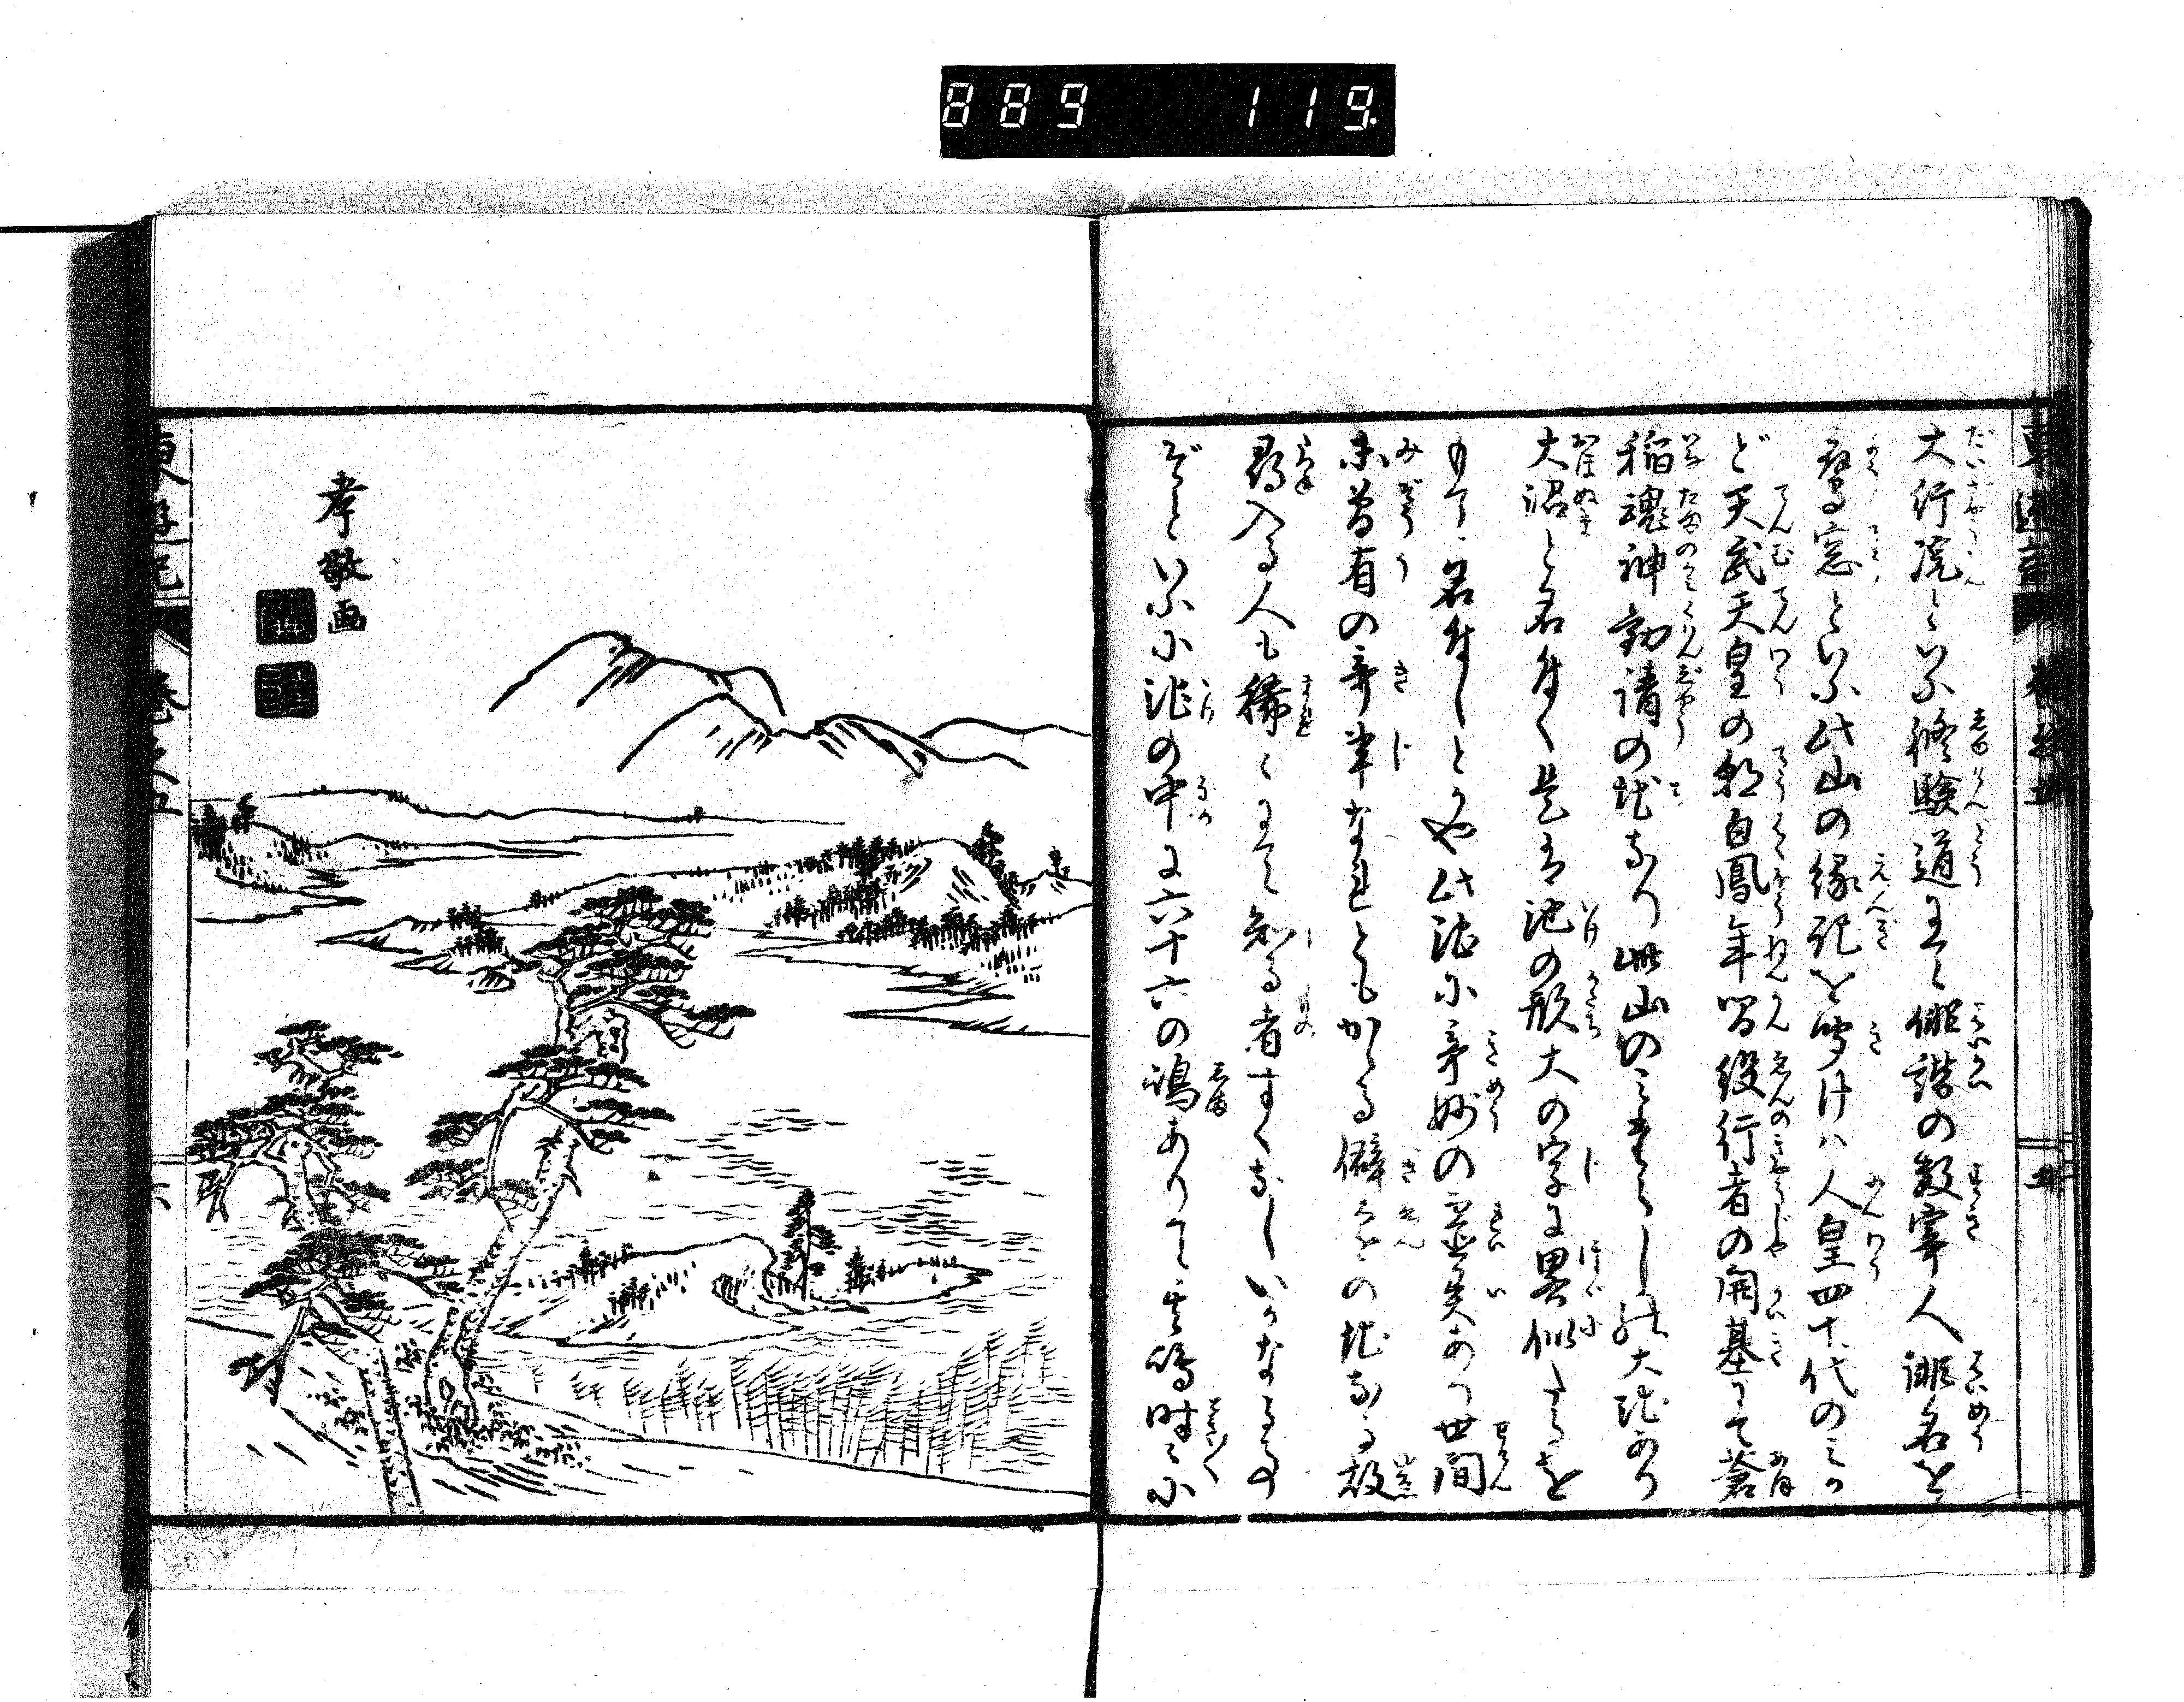 889 119.
大行院といふ修験道にて俳諧の数寄人誹名を
鷺窓といふ此山の縁記を聞けハ人皇四十代のみか
ど天武天皇の朝白鳳年間役行者の開基にて蒼
稲魂神勧請の地なり此山のうしろに大池あり
大沼と名付く是は池の形大の字に畧似たるを
もて名付しとかや此池に奇妙の霊異あり世間
未曽有の奇事なれともかゝる僻遠の地なる故
尋入る人も稀にして知る者すくなしいかなる
ぞといふに池の中に六十六の嶋ありて其嶋時々に
孝敬画